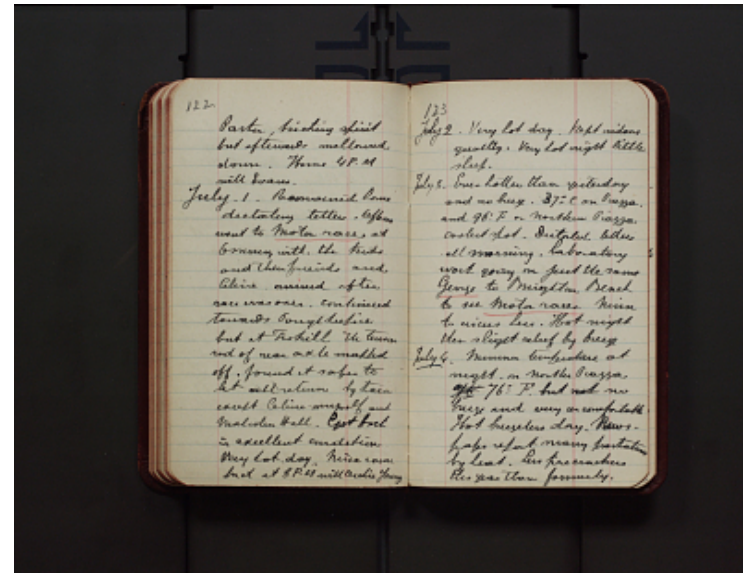 122
Pastor, birching spirit
but afterwards mellowed
down. Home 48 P.M
with Swans.
July 1. Remained home
dictating letters. After
went to Motor races at
with the kids
and their friends and
Celine. arrived after
race was over. continued
towards Poughkeepsie
but at Foxhill the torsion
rod of rear axle
off. found it safer to
let all return by train
except Celine myself and
Malcolm Hall. Got back
in excellent condition
Very hot day. Nina came
back at 8 P.M with Young
123
July 2. Very hot day. Kept indoors
quietly. Very hot night little
sleep.
July 3. Even hotter than yesterday
and no breeze. 37° C on Piazza.
and 96° F on northern Piazza
coolest spot. Dictated letters
all morning. Laboratory
work going on just the same
George to Brighton Beach
to see Motor races. Nina
to circus. Hot night
then slight relief by breeze
July 4. Minimum temperature at
night. on Norther Piazza
76° F. but not no
breeze and very uncomfortable.
Hot breezeless day. News-
paps report many prostations
by heat. Less firecrackers
this year than formerly.